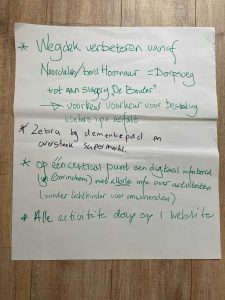 * Wegdek verbeteren vanaf
Noordeloos/bord Hoornaar = Dorpsweg
tot aan slagerij "De Bouter"
→ voorkeur voorkeur voor bestrating
klinkers i.p.v. asfalt
* Zebra bij dementiepad en
oversteek supermarkt.
* op één centraal punt een digitaal infobord
(Gorinchem) met allerlei info. over activiteiten
(zonder lichthinder voor omwonenden)
* Alle activiteiten dorp op 1 website